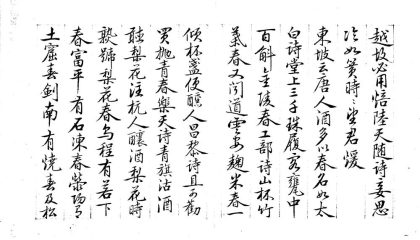 越故以用悟陸天随詩妾思
冷如簧時〻望君煖
東坡云唐人酒多以春名如太
白詩堂上三千珠履客甕中
百斛金陵春工部詩山杯竹
葉春又聞道雲安麹米春一
傾杯盞便醺人昌黎詩且可勸
買抛青春樂天詩青旗沽酒
趂梨花注杭人釀酒梨花時
熟號梨花春烏程有若下
春富平有石凍春滎陽有
土窟春劍南有燒春及松